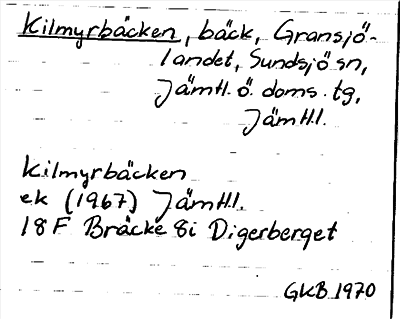 Kilmyrbäcken, bäck, Gransjö-
landet, Sundsjö sn,
Jämtl. ö. doms. tg,
Jämtl.
Kilmyrbäcken
ek (1967) Jämtl.
18F Bräcke 8i Digerberget
GKB 1970